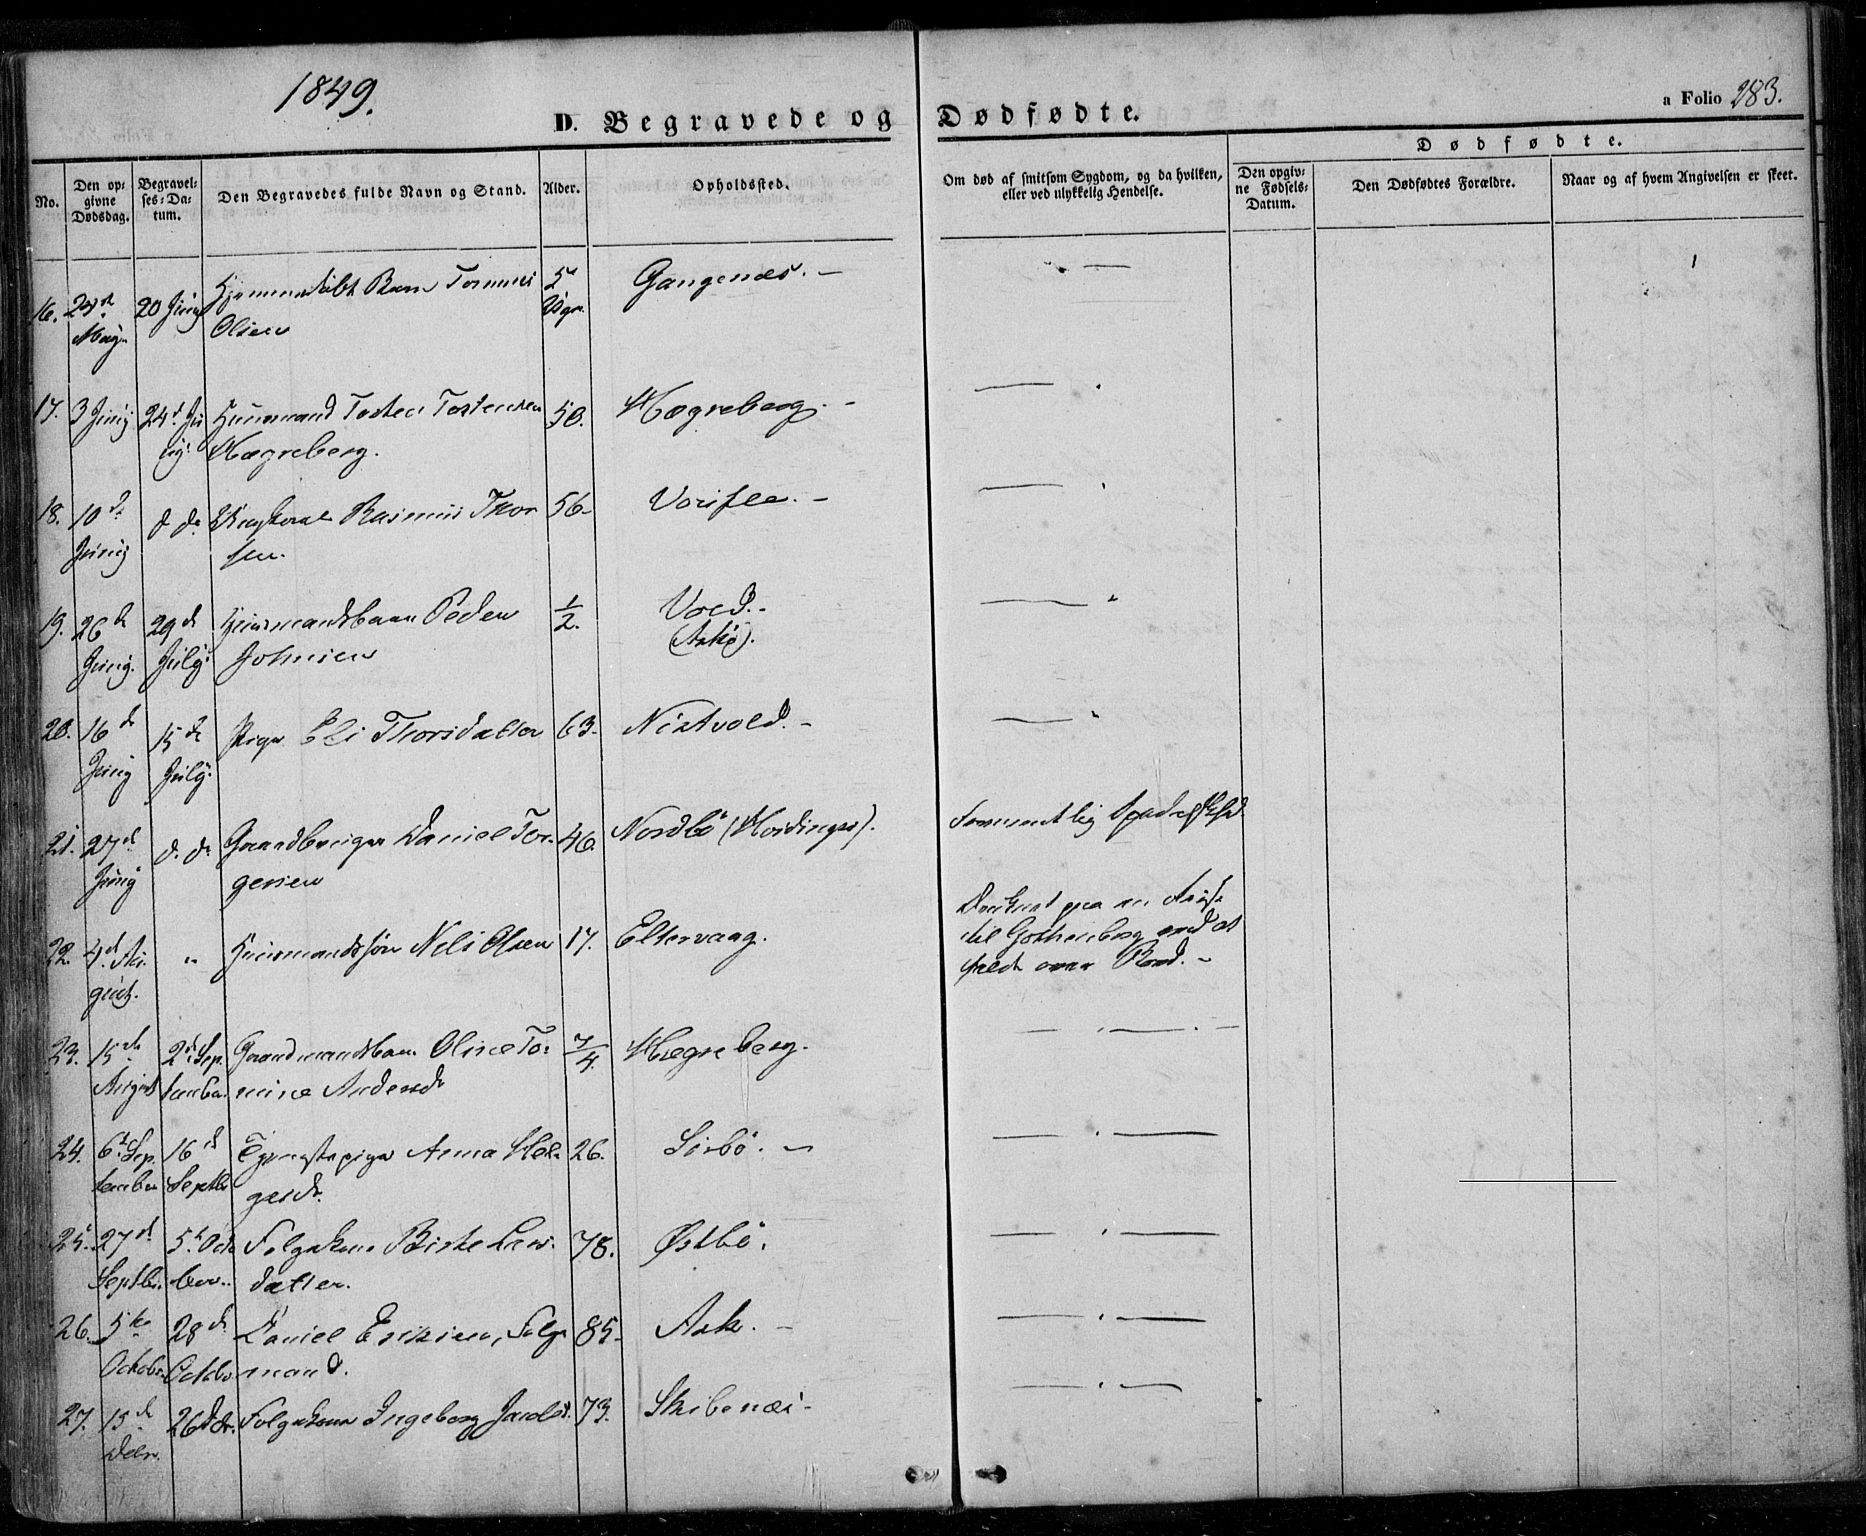 1849.
D. Begravede og Dødfødte.
a Folio 283.
No.
Den opgivne Dødsdag.
Begravelses-Datum.
Den Begravedes fulde Navn og Stand.
Alder.
Opholdssted.
Om død af smitsom Sygdom, og da hvilken,
eller ved ulykkelig Hendelse.
Dødfødte.
Den opgivne Fødsels-Datum.
Den Dødfødtes Forældre.
Naar og af hvem Angivelsen er skeet.
16. 20 Juny Hjemmedøbt Barn
Olsen
5
Ugr.
Gangenæs. -
17. 3 Juny 24d Ju
ny.
Huusmand Tosten Tostensen 50. Hægreberg. -
Hægreberg.
18. 10d
Juny
d. d. Rasmus Thor
sen.
56-
19. 26d
Juny.
29d
July.
Huusmandsbarn Peder
Johnsen
1/2.
(Askø).
20. 16d
Juny
15d
July.
Pige Eli Thorsdatter 63-
21. 27d
Juny
d. d. Gaardbruger Daniel Tor-
gersen
46. Nordbö
22. 4d Au-
gust.
" Huusmandssøn Nels Olsen 17. Eltervaag.
Druknet paa en Reise
til Gothenborg ved at
falde over Bord. -
23. 15de
August
2d Sep.
tember
Gaardmandsbarn Oline To-
mine Andersdr
7/4. Hægreberg.
24. 6d Sep.
tember
16d
Septbr
Tjenestepige Anna Hel-
gesdr.
26. Sörbö. -
25. 27d
Septbr.
5t Octo
ber.
Folgekone Birte Lars-
datter.
78. Østbö.
26. 5te
October
28d
Octobr
Daniel Eriksen, Folge
mand.
85- Ask. -
27. 15d
Decbr.
26d dr. Folgekone Ingeborg Jacobsd. 73. Skibenæs -